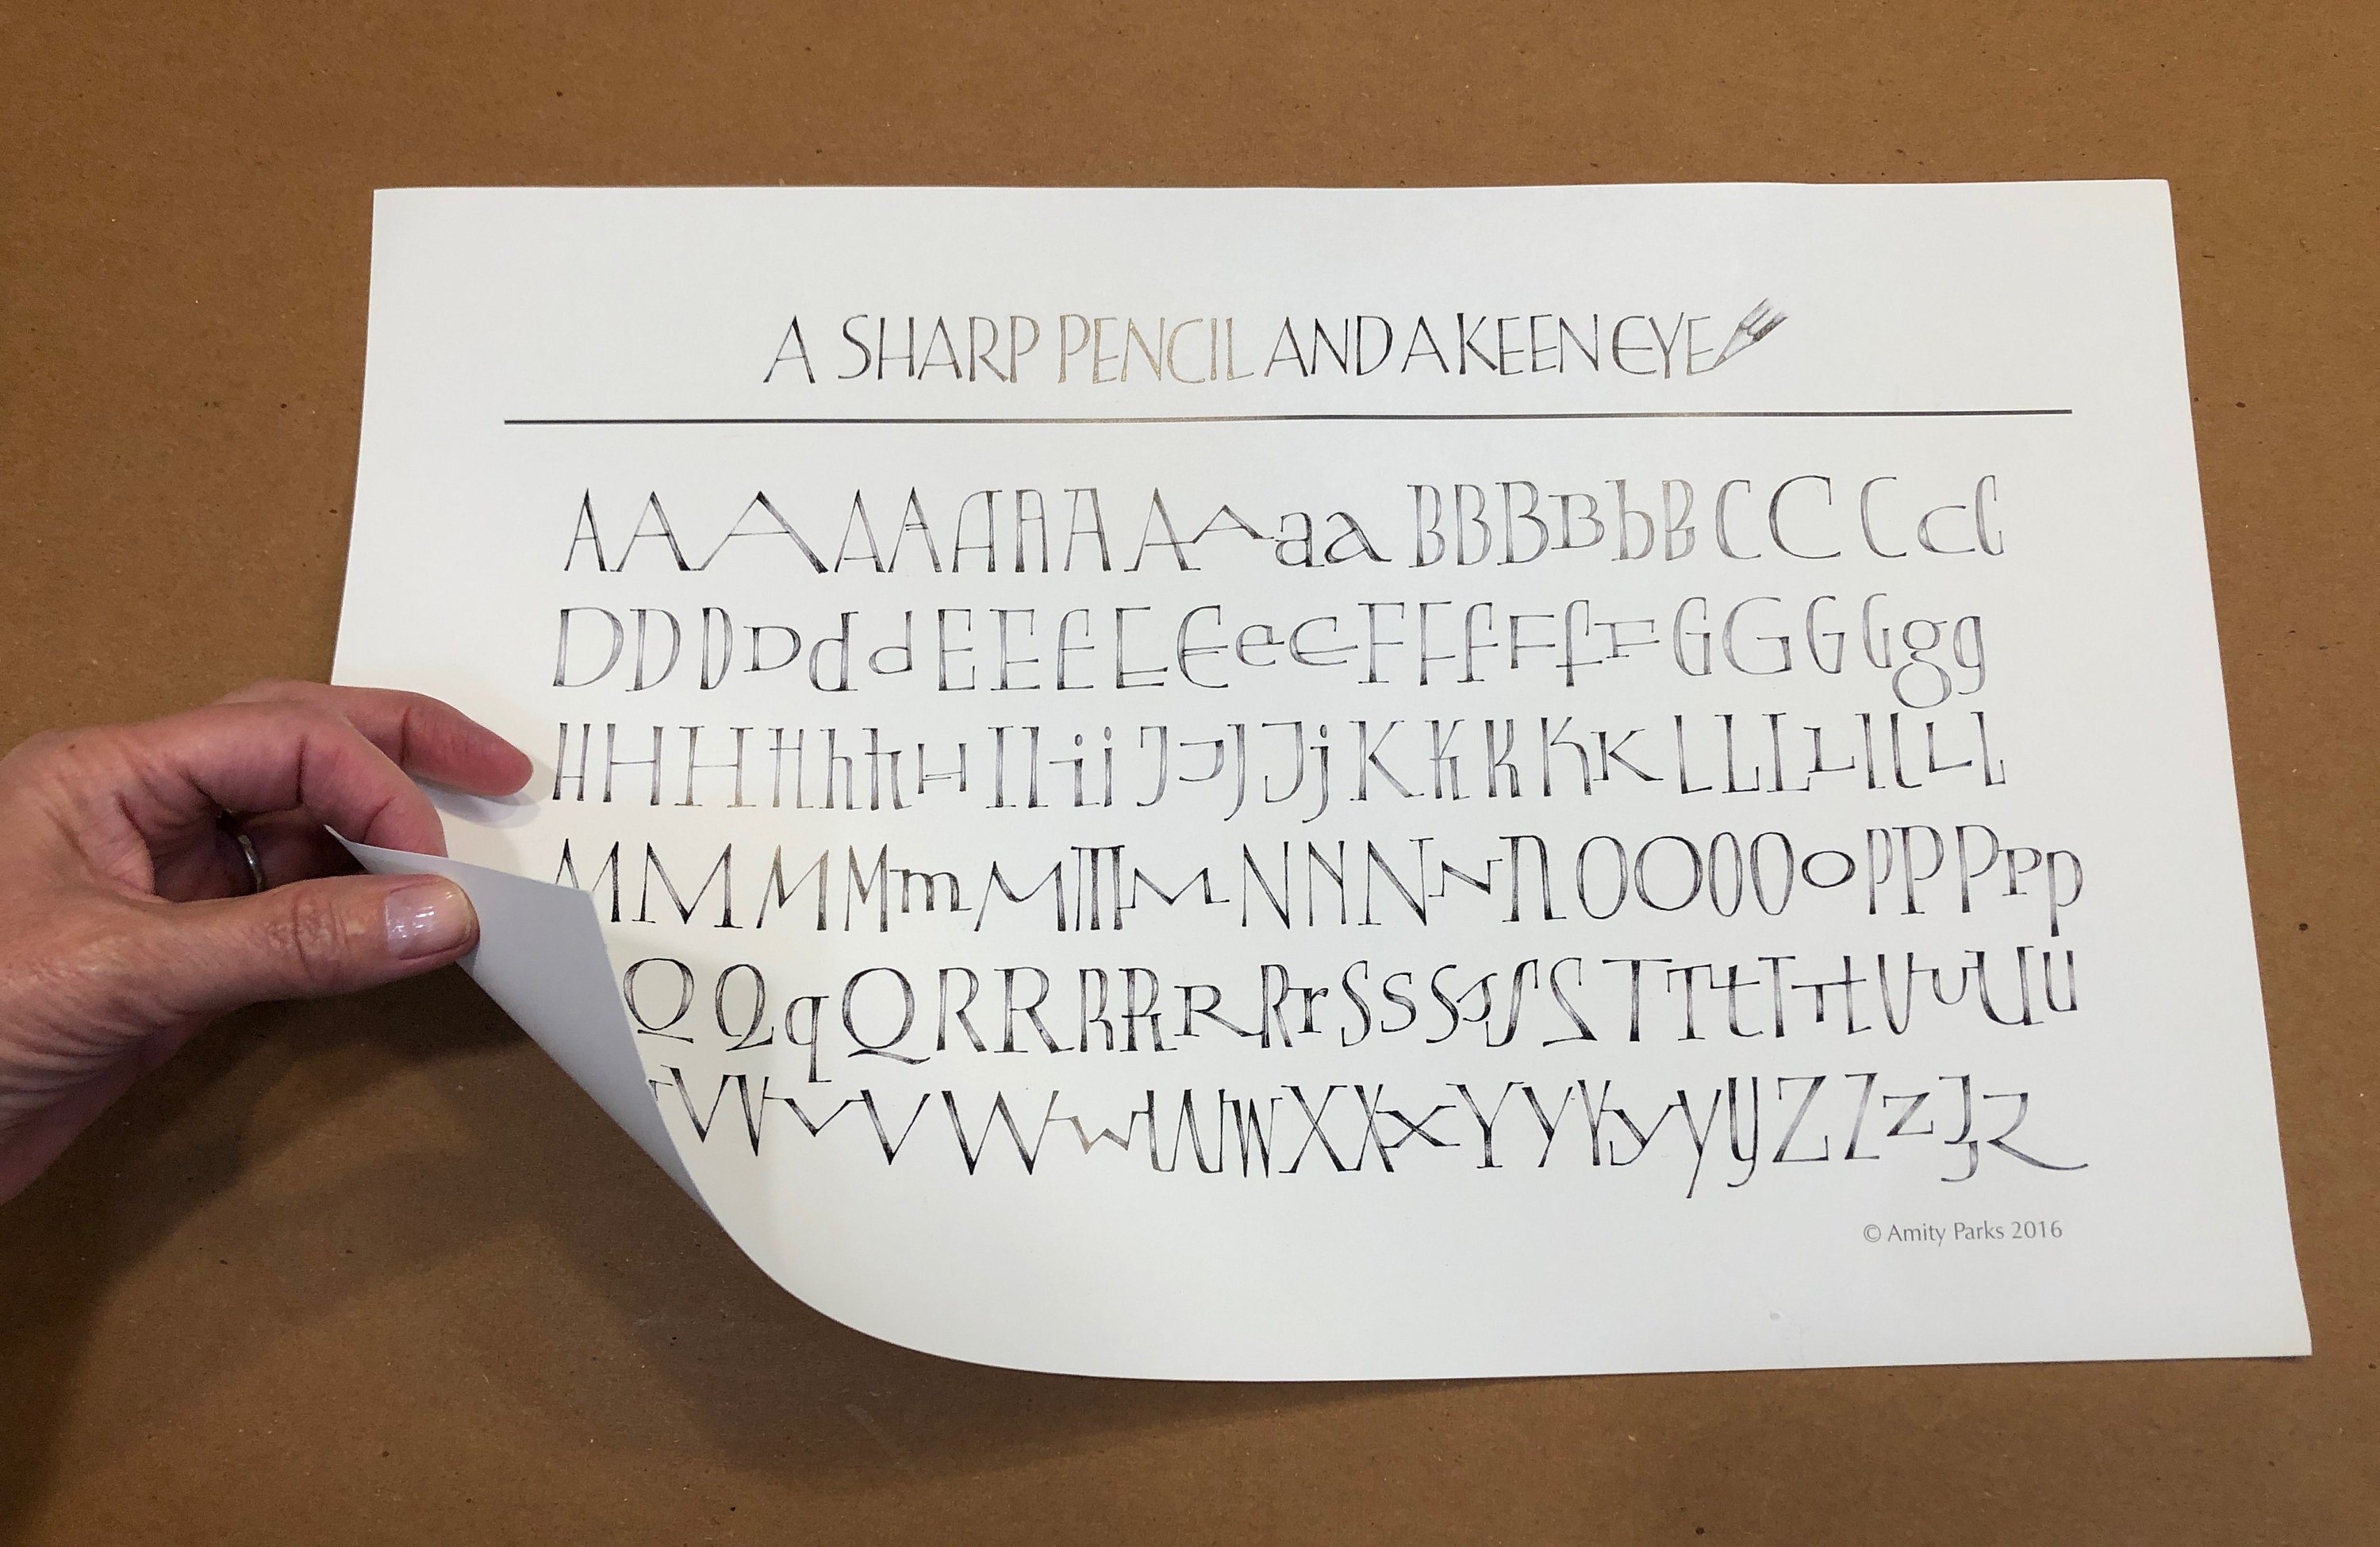 A SHARP PENCIL AND A KEEN EYE
A A A A A A A A A A a a B B B B b B C C C c C
D D D D d d E E E E E e e F F f F f F G G G G g g
H H H H H h h H I I i i J J J J j K K K K K L L L L l L L l
M M M M m M M M N N N N n O O O O o P P P P p
Q Q q Q R R R R R R r S S S s S S T T t T T t U u U u
V V v V W w W W X X x Y Y Y y y y Z Z z Z Z
© Amity Parks 2016